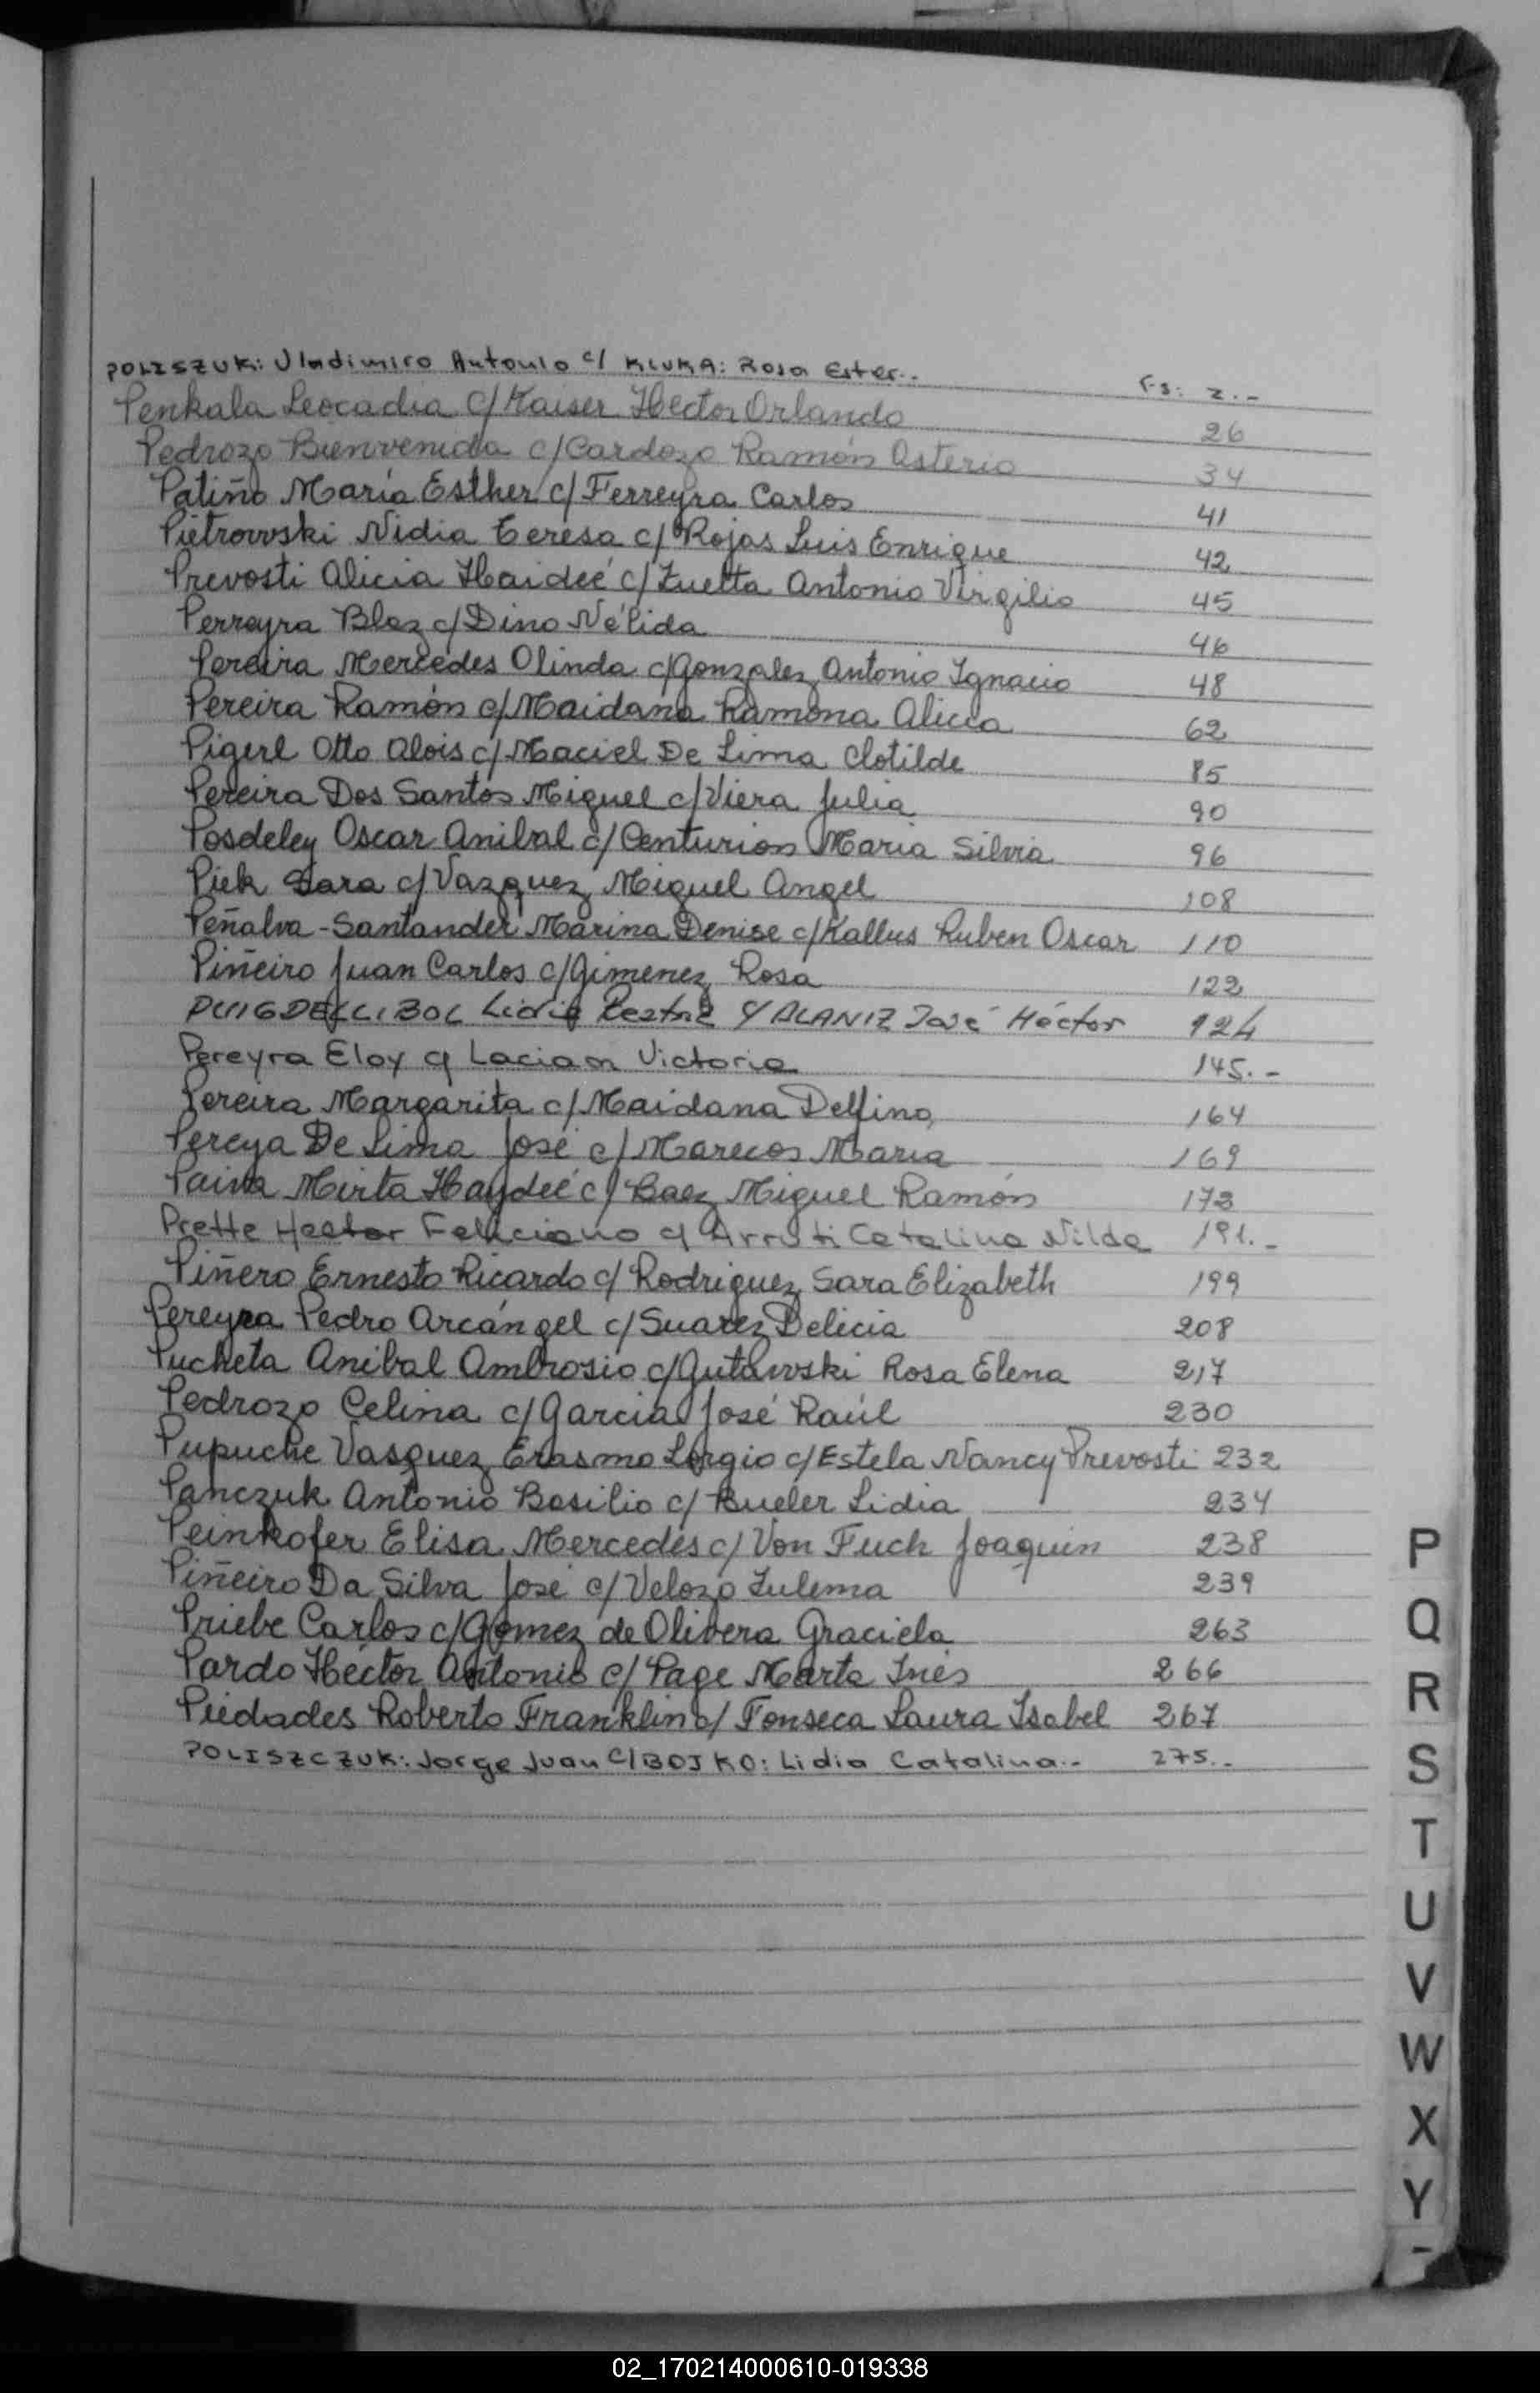 POLISZUK: Vladimiro Antonio c/ KLUKA: Rosa Ester.. Fs: 2.-
Penkala Leocadia c/ Kaiser Hector Orlando 26
Pedrozo Bienvenida c/ Cardozo Ramón Asterio 34
Patiño María Esther c/ Ferreyra Carlos 41
Pietrowski Nidia Teresa c/ Rojas Luis Enrique 42
Prevosti Alicia Haideé c/ Zuetta Antonio Virgilio 45
Perreyra Blaz c/ Dino Nélida 46
Pereira Mercedes Olinda c/ Gonzalez Antonio Ignacio 48
Pereira Ramón c/ Maidana Ramona Alicia 62
Pigerl Otto Alois c/ Maciel De Lima Clotilde 85
Pereira Dos Santos Miguel c/ Viera Julia 90
Posdeley Oscar Anibal c/ Centurion Maria Silvia 96
Piek Sara c/ Vazquez Miguel Angel 108
Peñalva-Santander Marina Denise c/ Kallus Ruben Oscar 110
Piñeiro Juan Carlos c/ Gimenez Rosa 122
PUIGDELLIBOL Lidia Y ALANIZ José Héctor 124
Pereyra Eloy c/ Victoria 145.-
Pereira Margarita c/ Maidana Delfino 164
Pereya De Lima José c/ Marecos Maria 169
Paiva Mirta Haydeé c/ Baez Miguel Ramón 173
Prette Hector Feliciano c/ Arruti Catalina Nilda 191.-
Piñero Ernesto Ricardo c/ Rodriguez Sara Elizabeth 199
Pereyra Pedro Arcángel c/ Suarez Delicia 208
Pucheta Anibal Ambrosio c/ Gutawski Rosa Elena 217
Pedrozo Celina c/ Garcia José Raúl 230
Pupuche Vasquez Erasmo Sergio c/ Estela Nancy Prevosti 232
Panczuk Antonio Basilio c/ Bueler Lidia 234
Peinkofer Elisa Mercedes c/ Von Fuch Joaquin 238
Piñeiro Da Silva José c/ Velozo Zulema 239
Priebe Carlos c/ Gomez de Olivera Graciela 263
Pardo Héctor Antonio c/ Page Marta Inés 266
Piedades Roberto Franklin c/ Fonseca Laura Isabel 267
POLISZCZUK: Jorge Juan C/ BOJKO: Lidia Catalina.- 275.-
P
Q
R
S
T
U
V
W
X
Y
-
02_170214000610-019338